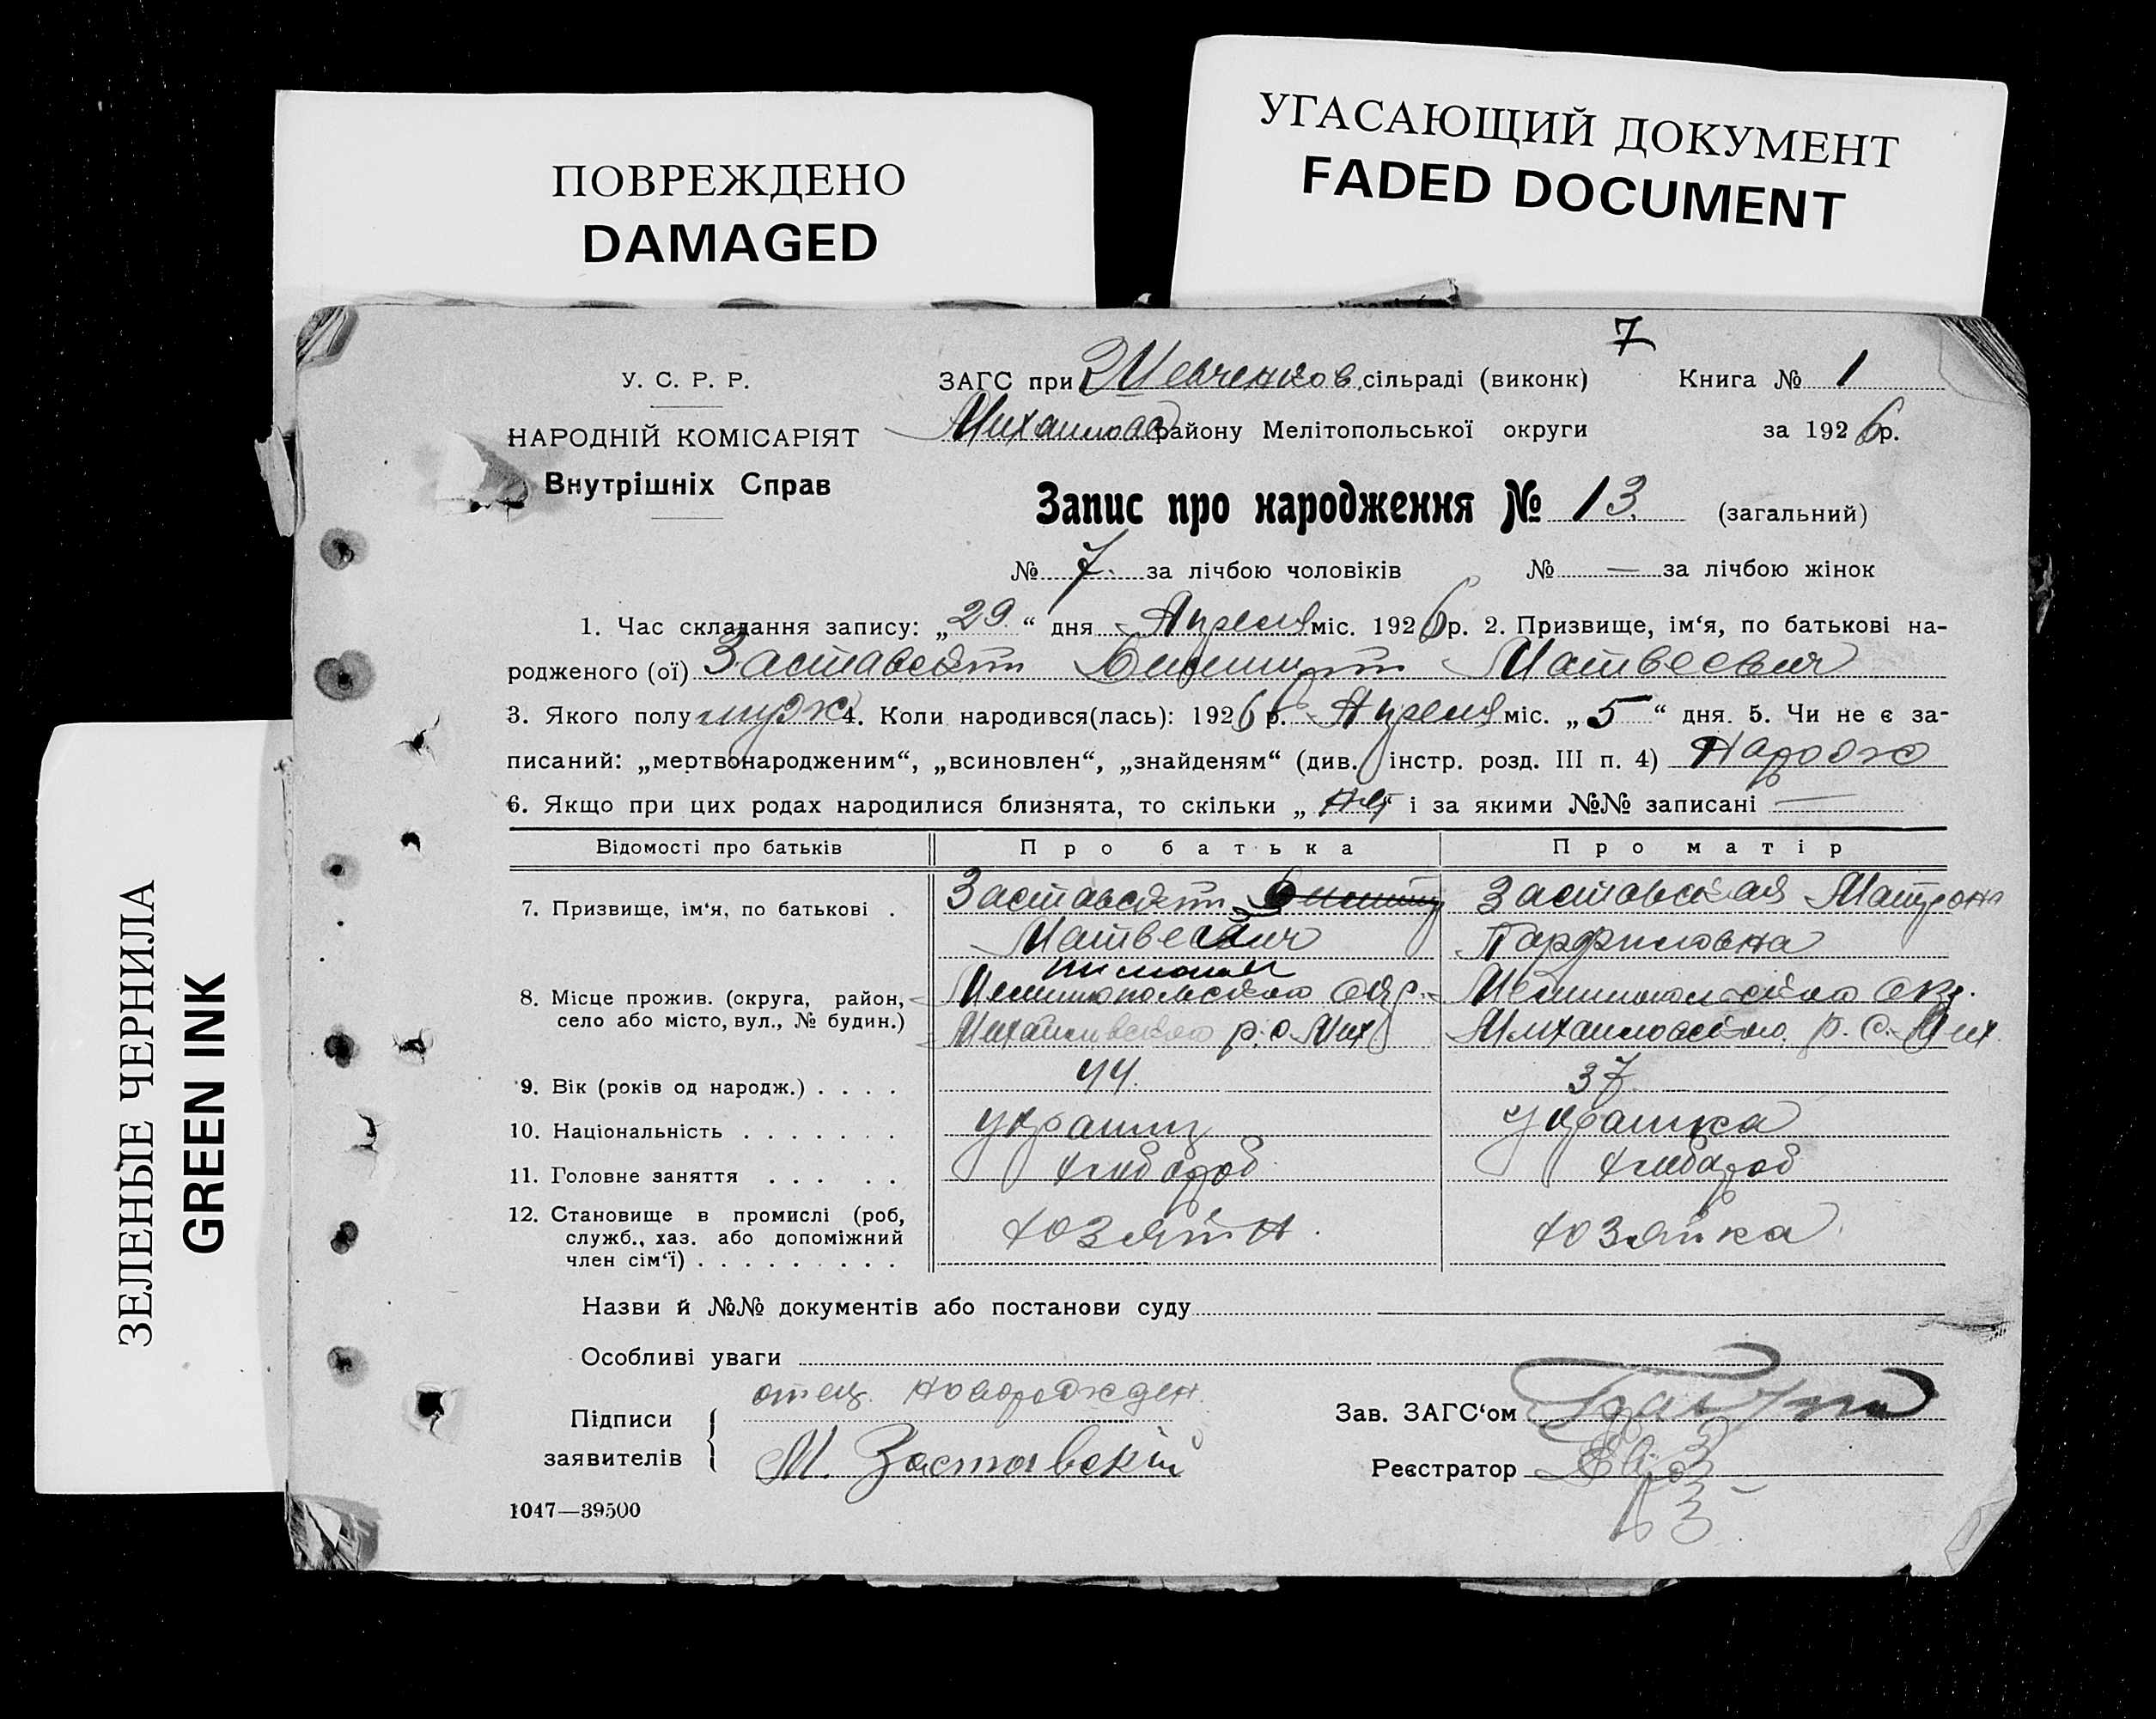 ПОВРЕЖДЕНО
DAMAGED
УГАСАЮЩИЙ ДОКУМЕНТ
FADED DOCUMENT
ЗЕЛЕНЫЕ ЧЕРНИЛА
GREEN INK
7
У. С. Р. Р.
НАРОДНІЙ КОМІСАРІЯТ
Внутрішніх Справ
ЗАГС при Шевченков. сільраді (виконк) Книга № 1
Михайлов району Мелітопольської округи за 1926 р.
Запис про народження № 13. (загальний)
№ 7. за лічбою чоловіків № — за лічбою жінок
1. Час складання запису: „29“ дня Апреля міс. 1926 р. 2. Призвище, ім‘я, по батькові на-
родженого (ої) Заставский Матвеевич
3. Якого полу муж 4. Коли народився(лась): 1926 р. Апреля міс. „5“ дня. 5. Чи не є за-
писаний: „мертвонародженим“, „всиновлен“, „знайденям“ (див. інстр. розд. III п. 4) Народж
6. Якщо при цих родах народилися близнята, то скільки „ і за якими №№ записані —
Відомості про батьків Про батька Про матір
7. Призвище, ім‘я, по батькові . Заставский Заставская Матрона
Матвей Парфиловна
8. Місце прожив. (округа, район, Мелитопольского окр. Мелитопольского окр.
село або місто, вул., № будин.) Михайловского р. с. Мих Михайловского р. с. Мих
9. Вік (років од народж.) . . . . 44. 37
10. Національність . . . . . . . украинц украинка
11. Головне заняття . . . . . хлебороб хлебороб
12. Становище в промислі (роб, хозяин. хозяйка
служб., хаз. або допоміжний
член сім‘ї) . . . . . . . . .
Назви й №№ документів або постанови суду
Особливі уваги
отец новорожден.
Підписи
заявителів М. Заставский
Зав. ЗАГС‘ом
Реєстратор
1047—39500